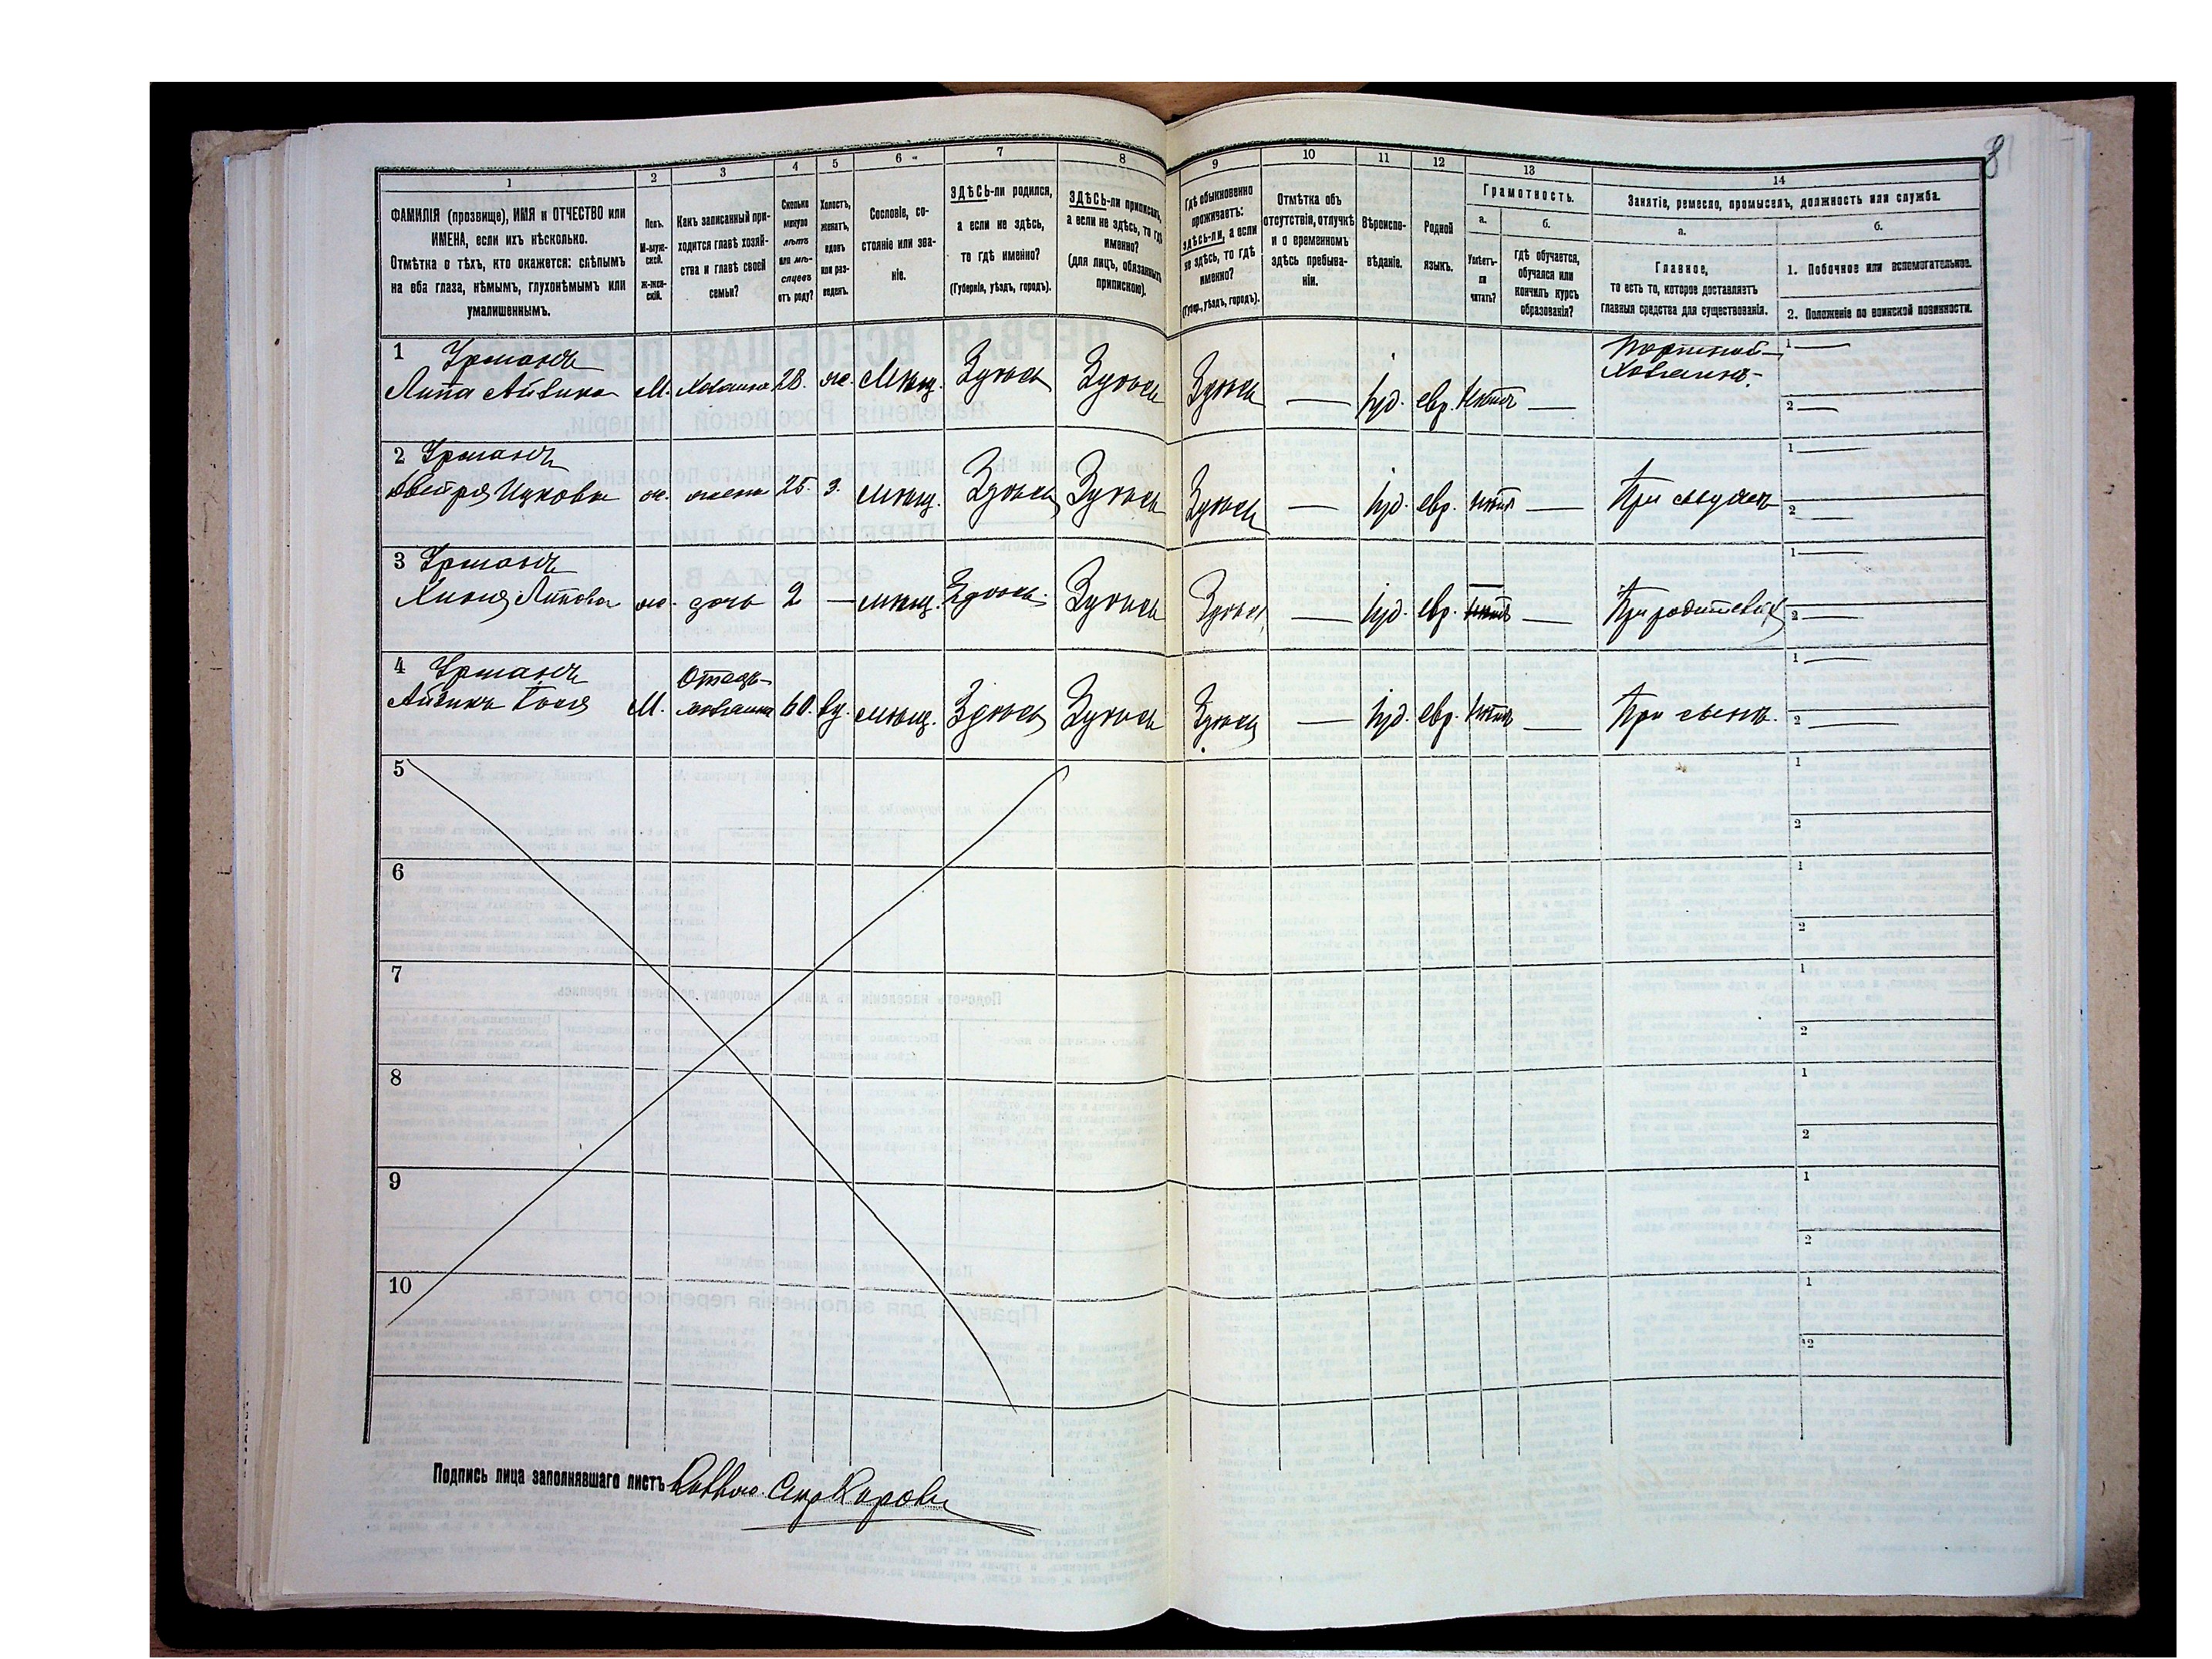 81
1
2
3
4
5
6
7
8
9
10
11
12
13
14
ФАМИЛІЯ (прозвище), ИМЯ и ОТЧЕСТВО или
ИМЕНА, если ихъ нѣсколько.
Отмѣтка о тѣхъ, кто окажется: слѣпымъ
на оба глаза, нѣмымъ, глухонѣмымъ или
умалишеннымъ.
Полъ.
М-муж-
ской.
ж-жен-
скій.
Какъ записанный при-
ходится главѣ хозяй-
ства и главѣ своей
семьи?
Сколько
минуло
лѣтъ
или мѣ-
сяцевъ
отъ роду?
Холостъ,
женатъ,
вдовъ
или раз-
веденъ.
Сословіе, со-
стояніе или зва-
ніе.
ЗДѢСЬ-ли родился,
а если не здѣсь,
то гдѣ именно?
(Губернія, уѣздъ, городъ).
ЗДѢСЬ-ли приписанъ,
а если не здѣсь, то гдѣ
именно?
(для лицъ, обязанныхъ
припискою).
Гдѣ обыкновенно
проживаетъ:
здѣсь-ли, а если
не здѣсь, то гдѣ
именно?
(Губер., уѣздъ, городъ).
Отмѣтка объ
отсутствіи, отлучкѣ
и о временномъ
здѣсь пребыва-
ніи.
Вѣроиспо-
вѣданіе.
Родной
языкъ.
Грамотность.
а.
б.
Умѣетъ-
ли
читать?
Гдѣ обучается,
обучался или
кончилъ курсъ
образованія?
Занятіе, ремесло, промыселъ, должность или служба.
а.
б.
Главное,
то есть то, которое доставляетъ
главныя средства для существованія.
1. Побочное или вспомогательное.
2. Положеніе по воинской повинности.
1 Урманъ
Липа Айзика М. хозяинъ 28. ж. Мѣщ. Здѣсь Здѣсь Здѣсь — іуд. евр. Нѣтъ — Портной— 1 —
Хозяинъ. 2 —
2 Урманъ
Двейра Ицкова ж. жена 25. з. мѣщ. Здѣсь Здѣсь Здѣсь — іуд. евр. нѣтъ — При мужѣ 1 —
2 —
3 Урманъ
Липова ж. дочь 2 — мѣщ. Здѣсь Здѣсь Здѣсь — іуд. евр. нѣтъ — При родителяхъ 1 —
2 —
4 Урманъ Отецъ
Айзикъ М. хозяина 60. вд. мѣщ. Здѣсь Здѣсь Здѣсь — іуд. евр. Нѣтъ — При сынѣ. 1 —
2 —
5 1
2
6 1
2
7 1
2
8 1
2
9 1
2
10 1
2
Подпись лица заполнявшаго листъ